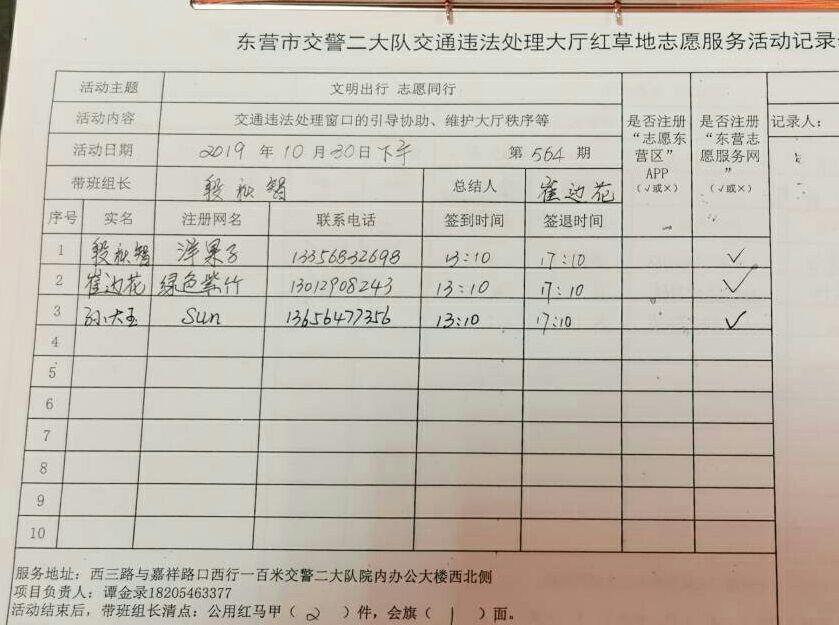 东营市交警二大队交通违法处理大厅红草地志愿服务活动记录
活动主题 文明出行 志愿同行
活动内容 交通违法处理窗口的引导协助、维护大厅秩序等
活动日期 2019 年 10 月 30 日下午 第 564 期
带班组长 段 智 总结人 崔边花
是否注册“志愿东营区”APP（√或×）
是否注册“东营志愿服务网”（√或×）
记录人：
序号 实名 注册网名 联系电话 签到时间 签退时间
1 段 智 洋果子 13356832698 13:10 17:10 ✓
2 崔边花 绿色紫竹 13012908243 13:10 17:10 ✓
3 孙大玉 Sun 13656477356 13:10 17:10 ✓
4
5
6
7
8
9
10
服务地址：西三路与嘉祥路口西行一百米交警二大队院内办公大楼西北侧
项目负责人：谭金录18205463377
活动结束后，带班组长清点：公用红马甲（ 2 ）件，会旗（ 1 ）面。